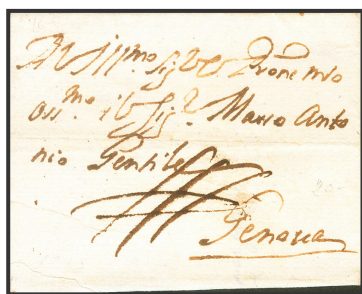 All Ill.mo Sig.r e Prone mio
oss.mo il Sig.r Marco Anto
nio Gentile
Genova
20-